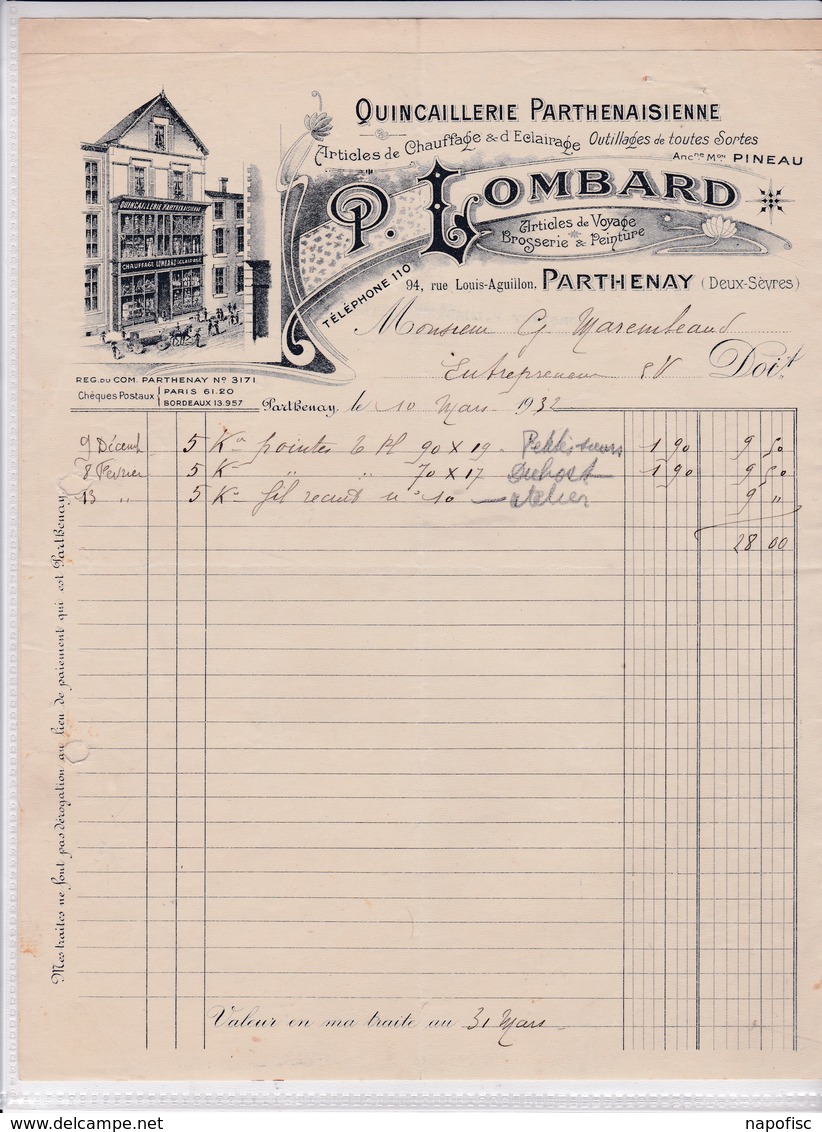 QUINCAILLERIE PARTHENAISIENNE
Articles de Chauffage & d'Eclairage Outillages de toutes Sortes
Anc.ne M.on PINEAU
P. LOMBARD
Articles de Voyage
Brosserie & Peinture
TÉLÉPHONE 110
94, rue Louis-Aguillon, PARTHENAY (Deux-Sèvres)
QUINCAILLERIE PARTHENAISIENNE
CHAUFFAGE LOMBARD ECLAIRAGE
Monsieur G. Marembeaud
Entrepreneur E.V Doit
REG. DU COM. PARTHENAY Nº 3171
Chèques Postaux PARIS 61.20
BORDEAUX 13.957
Parthenay, le 10 Mars 1932
9 Décemb 5 Kos pointes T. Pl 90 x 19 1 90 9 50
8 Fevrier 5 K " " 70 x 17 1 90 9 50
13 " 5 K. fil recuit nº 10 atelier 9 "
28 00
Mes traites ne font pas dérogation au lieu de paiement qui est Parthenay
Valeur en ma traite au 31 Mars
napofisc